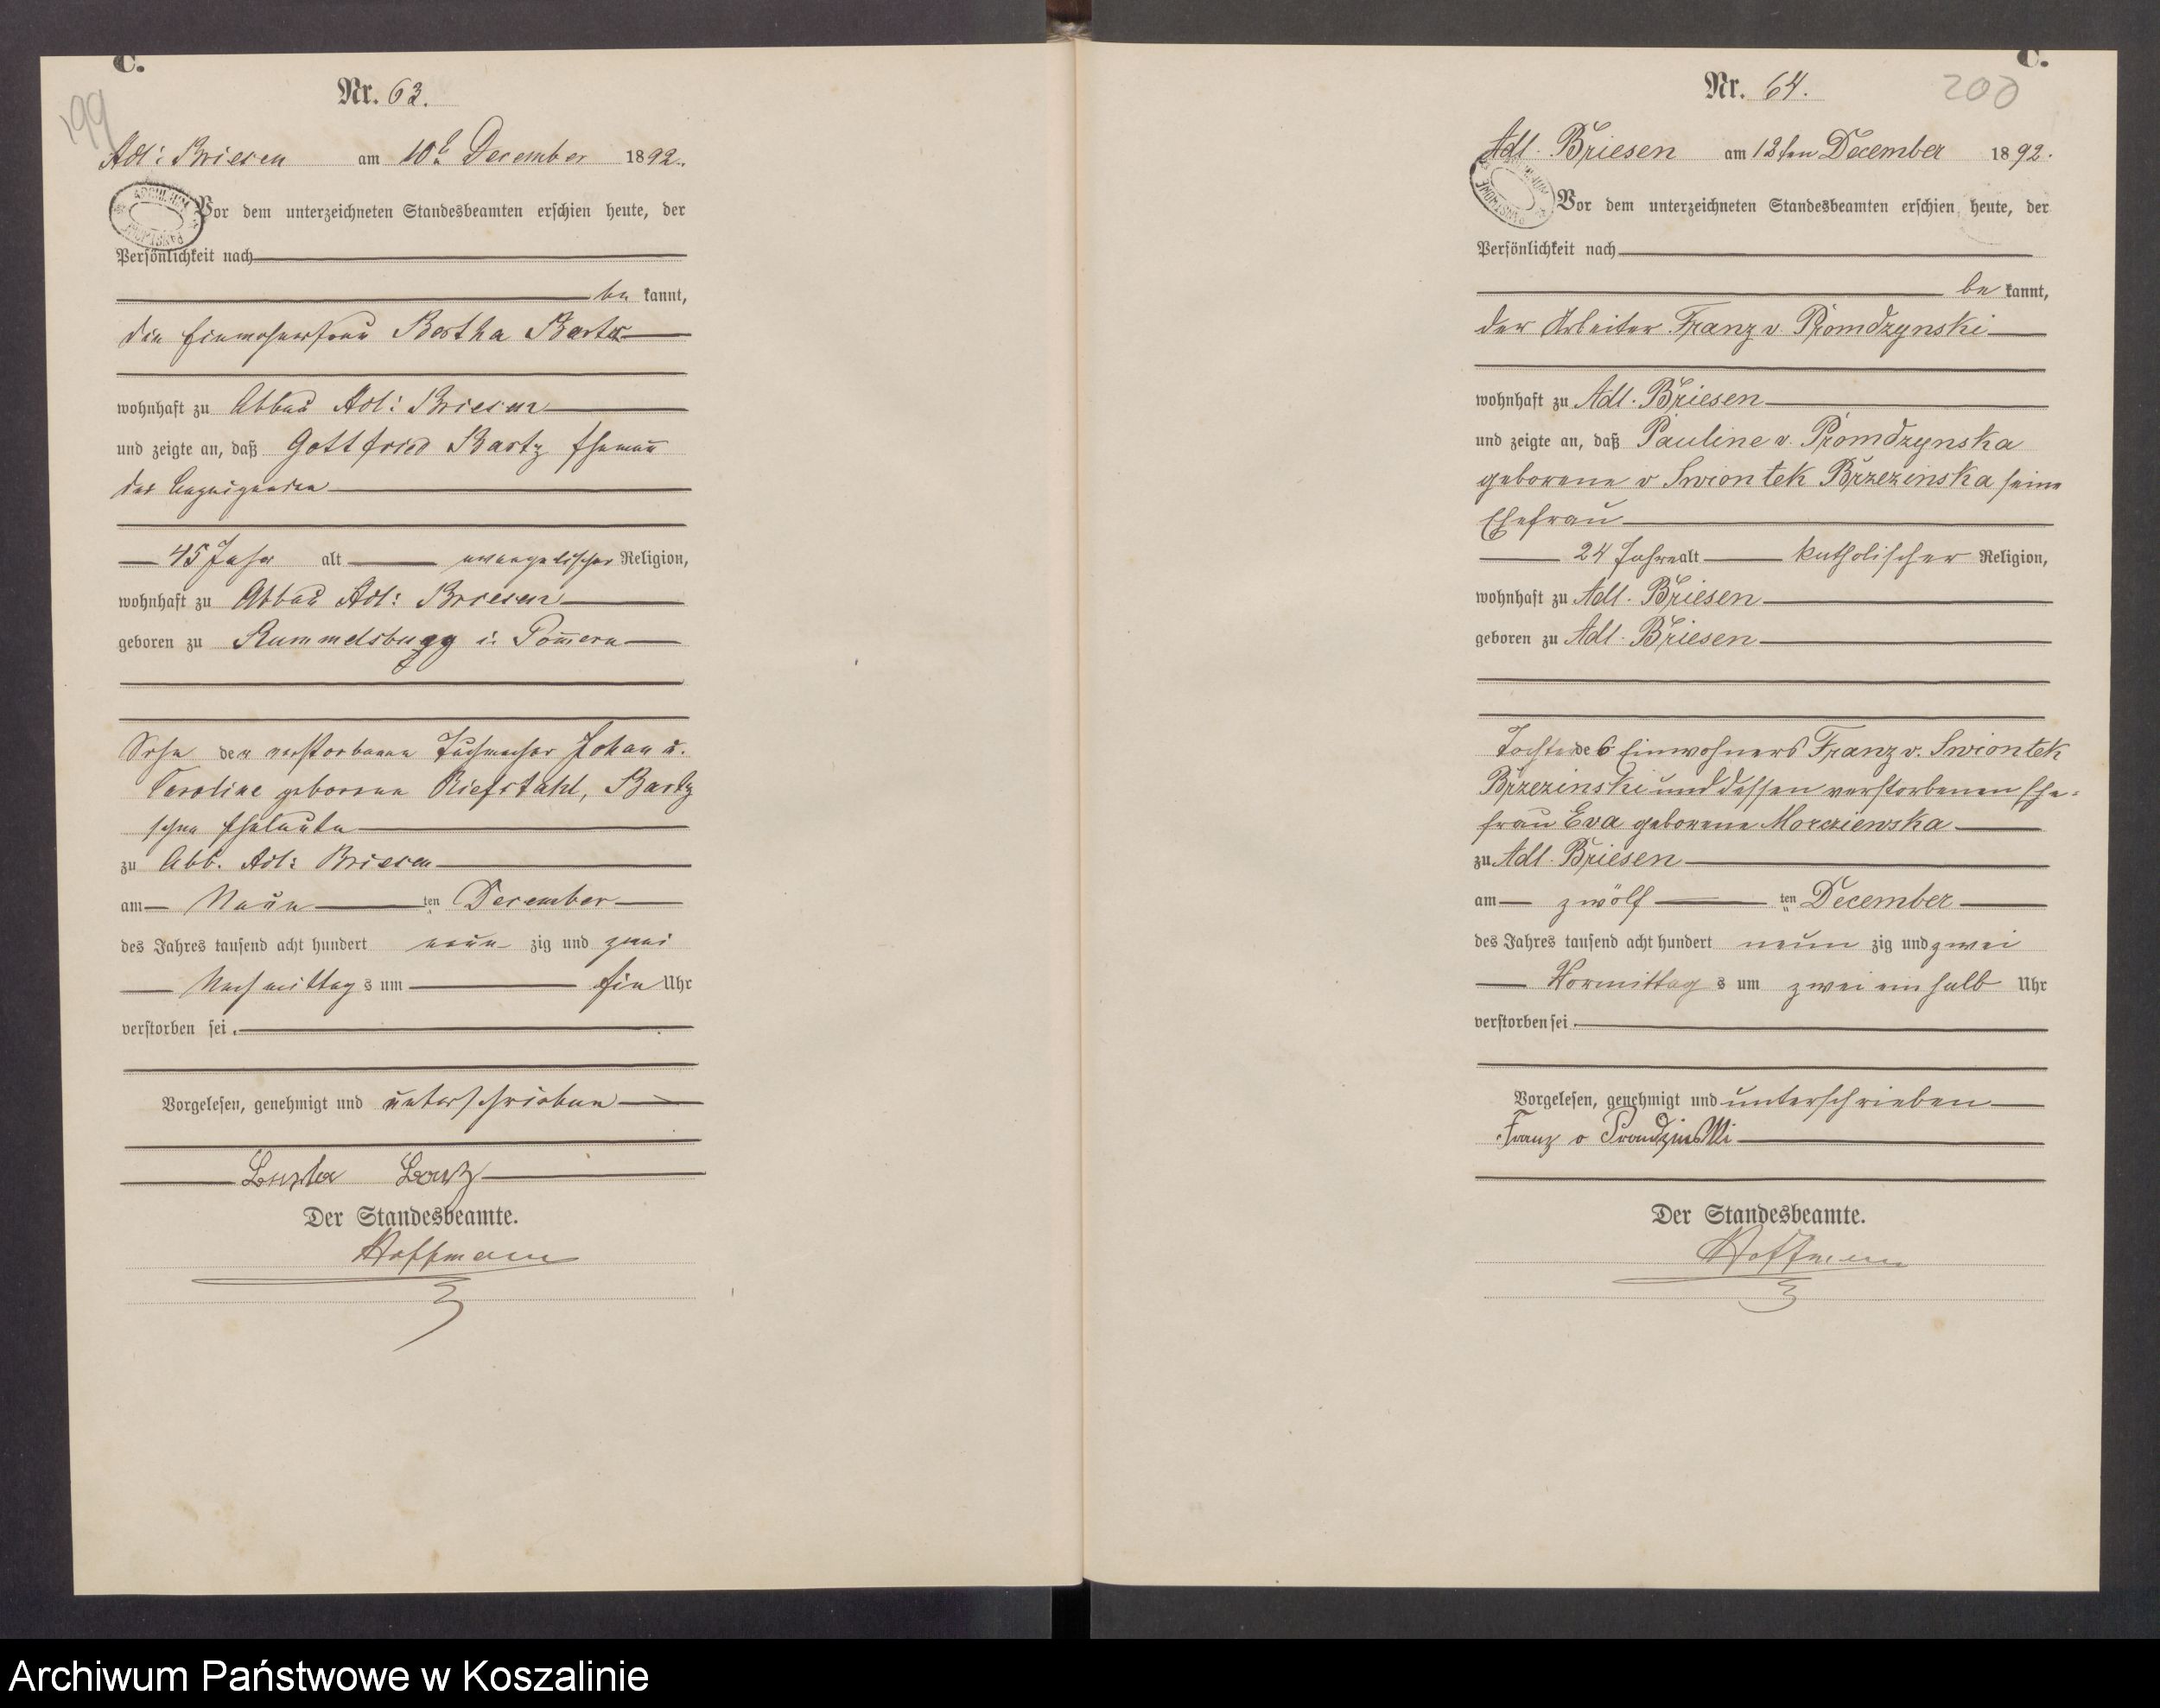 C.
Nr. 63.
199
Adl: Briesen am 10t December 1892.
Vor dem unterzeichneten Standesbeamten erschien heute, der
Persönlichkeit nach
be kannt,
die Einwohnerfrau Bertha Bartz
wohnhaft zu Abbau Adl: Briesen
und zeigte an, daß Gottfried Bartz Ehemañ
der Anzeigenden
45 Jahr alt evangelischer Religion,
wohnhaft zu Abbau Adl: Briesen
geboren zu Rummelsburg i. Pom̃ern
Sohn der verstorbenen Tuchmacher Johan u.
Caroline geborene Riefstahl, Bartz
schen Eheleute
zu Abb. Adl: Briesen
am Neun ten December
des Jahres tausend acht hundert neun zig und zwei
Nachmittag s um Ein Uhr
verstorben sei.
Vorgelesen, genehmigt und unterschrieben
Bartz
Der Standesbeamte.
Hoffmann
C.
Nr. 64.
200
Adl. Briesen am 12ten December 1892.
Vor dem unterzeichneten Standesbeamten erschien heute, der
Persönlichkeit nach
be kannt,
der Arbeiter Franz v. Promdzynski
wohnhaft zu Adl. Briesen
und zeigte an, daß Pauline v. Promdzynska
geborene v Swiontek Brzezinska seine
Ehefrau
24 Jahre alt katholischer Religion,
wohnhaft zu Adl. Briesen
geboren zu Adl. Briesen
Tochter des Einwohners Franz v. Swiontek
Brzezinski und dessen verstorbenen Ehe-
frau Eva geborene
zu Adl. Briesen
am zwölf ten December
des Jahres tausend acht hundert neun zig und zwei
Vormittag s um zwei ein halb Uhr
verstorben sei.
Vorgelesen, genehmigt und unterschrieben
Franz v
Der Standesbeamte.
Hoffmann
Archiwum Państwowe w Koszalinie